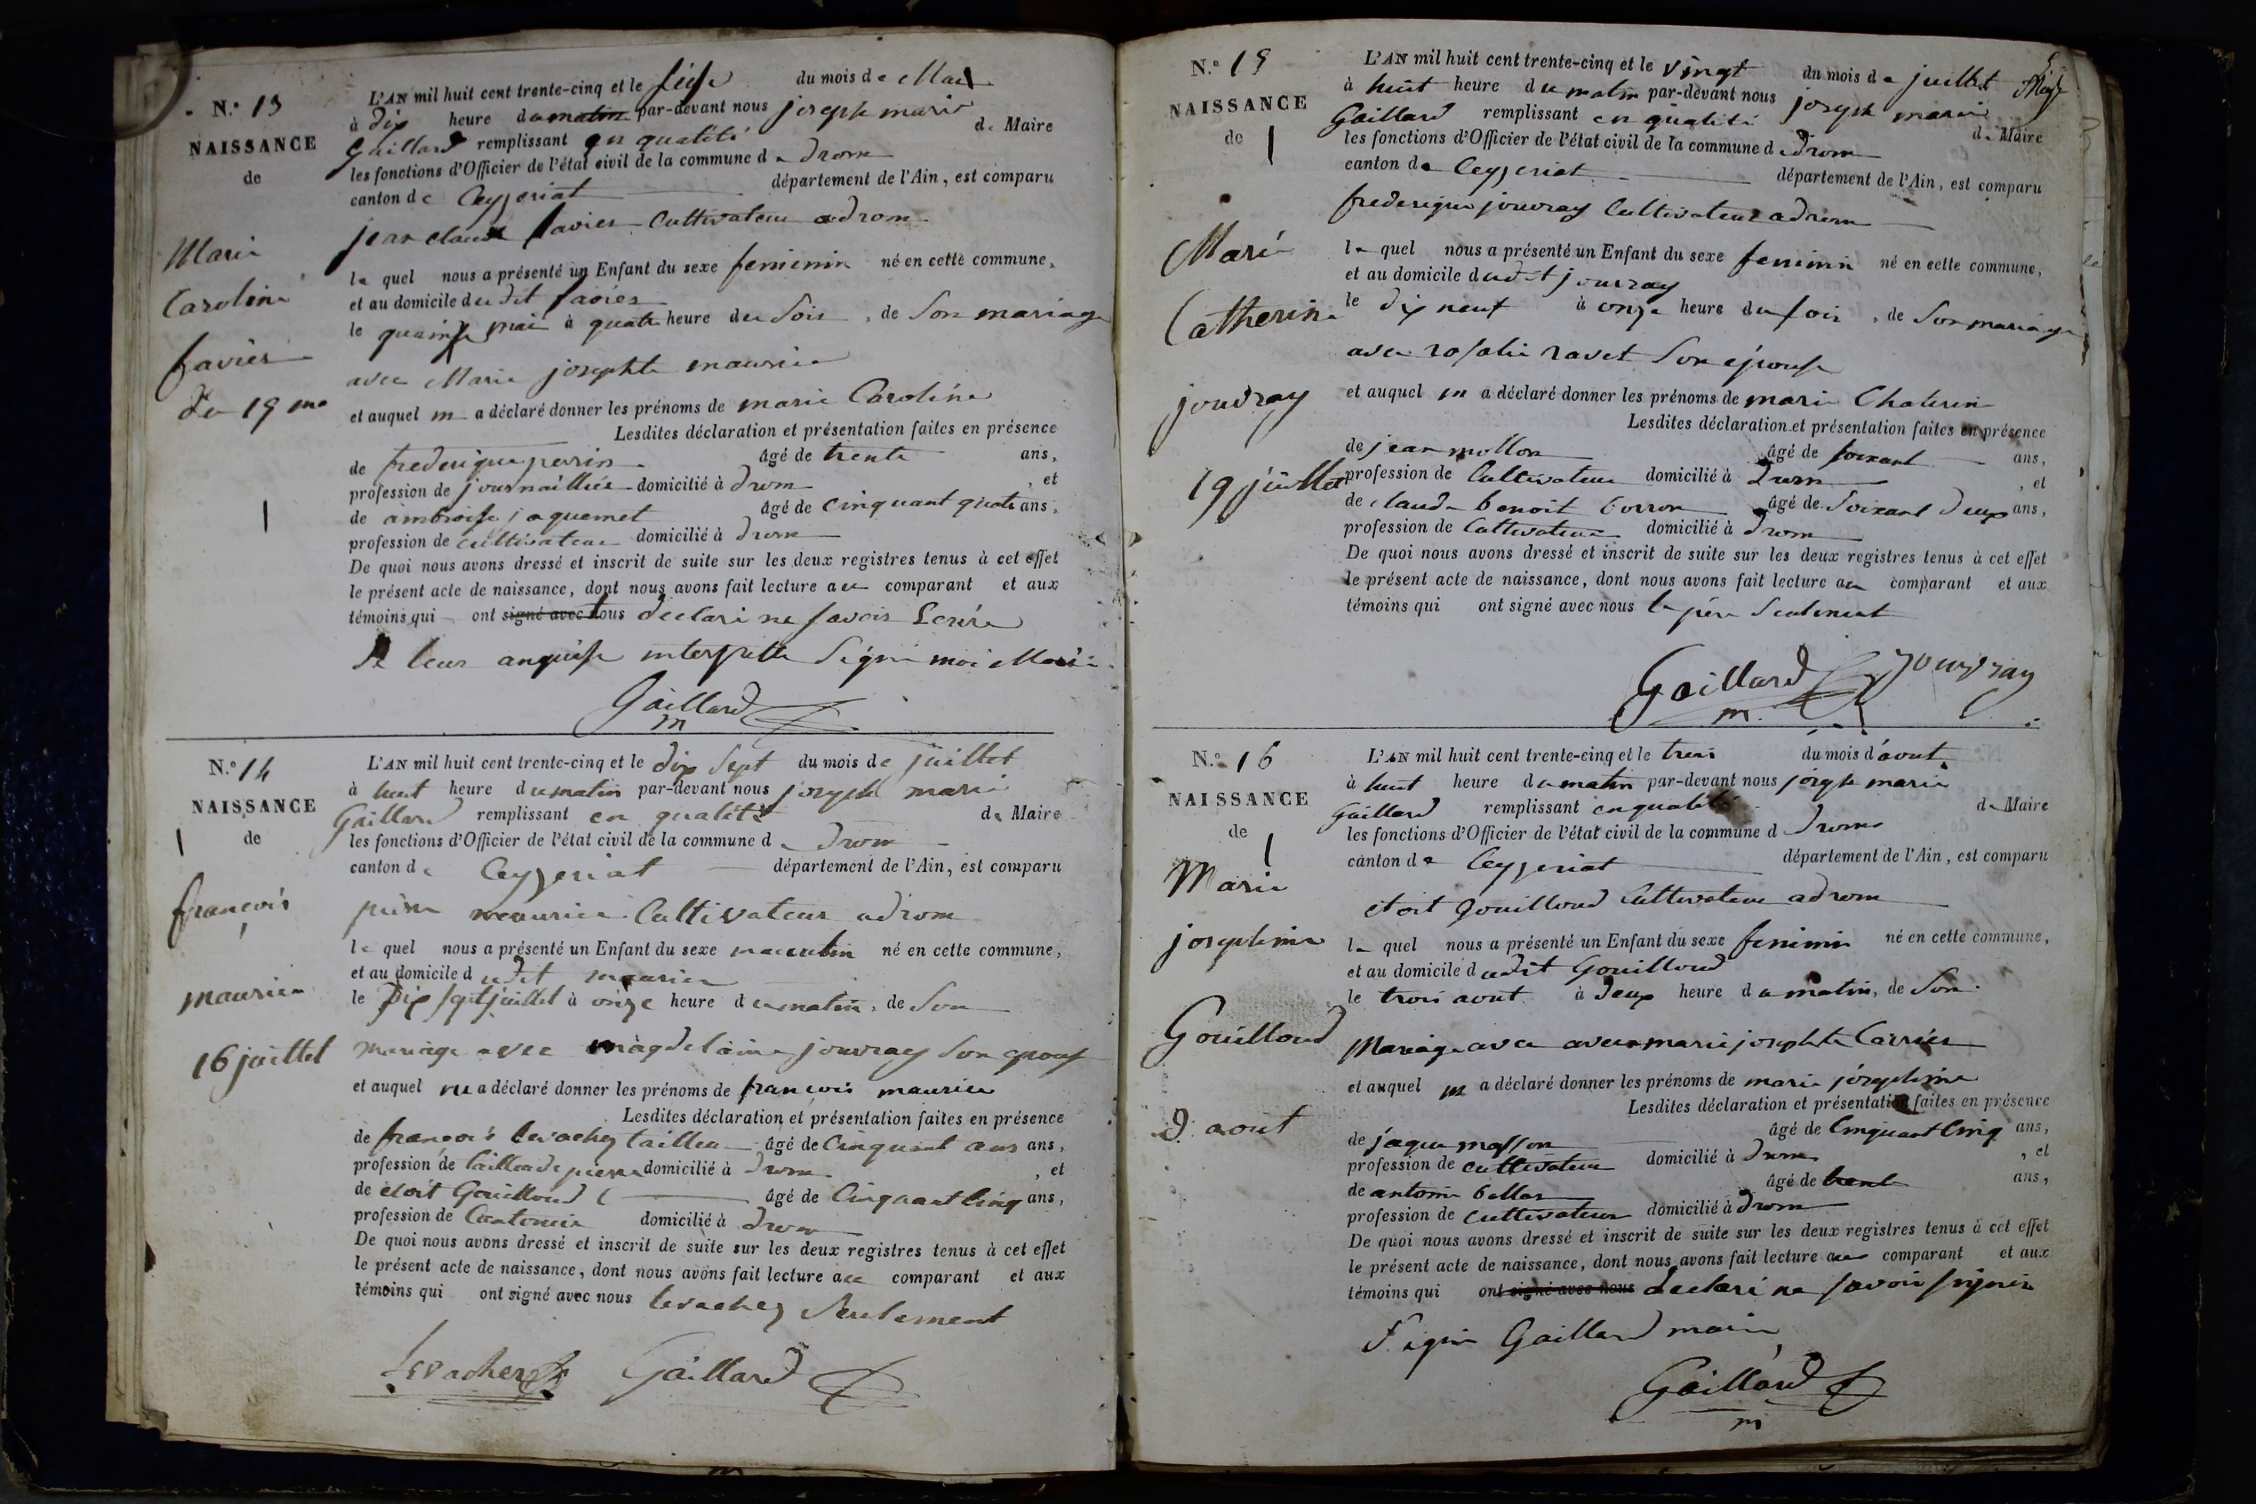 N.o 13
NAISSANCE
de
Marie
Caroline
favier
du 19 me
L'AN mil huit cent trente-cinq et le seize du mois de Mai
à dix heure du matin par-devant nous joseph marie
Gaillard remplissant en qualité de Maire
les fonctions d'Officier de l'état civil de la commune de drom
canton de Ceyzeriat département de l'Ain, est comparu
jean claude favier Cultivateur a drom
le quel nous a présenté un Enfant du sexe feminin né en cette commune,
et au domicile du dit favier
le quainze mai à quatre heure du Soir, de Son mariage
avec Marie josephte maurice
et auquel m a déclaré donner les prénoms de marie Caroline
Lesdites déclaration et présentation faites en présence
de frederique perrin âgé de trente ans,
profession de journaillier domicilié à drom, et
de ambroise jaquemet âgé de cinquant quatre ans,
profession de cultivateur domicilié à drom
De quoi nous avons dressé et inscrit de suite sur les deux registres tenus à cet effet
le présent acte de naissance, dont nous avons fait lecture au comparant et aux
témoins qui ont signé avec nous declaré ne savoir Ecrire
de leur anquise interpelle Signé moi Maire
Gaillard
m
N.o 14
NAISSANCE
de
françois
maurice
16 juillet
L'AN mil huit cent trente-cinq et le dix Sept du mois de juillet
à huit heure du matin par-devant nous joseph marie
Gaillard remplissant en qualité de Maire
les fonctions d'Officier de l'état civil de la commune de drom
canton de Ceyzeriat département de l'Ain, est comparu
maurice Cultivateur a drom
le quel nous a présenté un Enfant du sexe masculin né en cette commune,
et au domicile dudit maurice
le Dix sept juillet à onze heure du matin, de Son
mariage avec magdelaine jouvray Son epouse
et auquel a déclaré donner les prénoms de françois maurice
Lesdites déclaration et présentation faites en présence
de françois levacher tailleu âgé de Cinquant ans ans,
profession de tailleu de pierre domicilié à drom, et
de étoit Gouilloud âgé de Cinquant Cinq ans,
profession de Cantonier domicilié à drom
De quoi nous avons dressé et inscrit de suite sur les deux registres tenus à cet effet
le présent acte de naissance, dont nous avons fait lecture au comparant et aux
témoins qui ont signé avec nous levacher Seulement
Levacher Gaillard
N.o 15
NAISSANCE
de
Marie
Catherine
jouvray
19 juillet
L'AN mil huit cent trente-cinq et le vingt du mois de juillet
à huit heure du matin par-devant nous joseph marie
Gaillard remplissant en qualité de Maire
les fonctions d'Officier de l'état civil de la commune de drom
canton de Ceyzeriat département de l'Ain, est comparu
frederique jouvray Cultivateur a drom
le quel nous a présenté un Enfant du sexe feminin né en cette commune,
et au domicile dudit jouvray
le dix neuf à onze heure du soir, de Son mariage
avec rosalie ravet Son epouse
et auquel m a déclaré donner les prénoms de marie Chaterin
Lesdites déclaration et présentation faites en présence
de jean mollon âgé de soixant ans,
profession de Cultivateur domicilié à drom, et
de claude benoit borron âgé de Soixant deux ans,
profession de Cultivateur domicilié à drom
De quoi nous avons dressé et inscrit de suite sur les deux registres tenus à cet effet
le présent acte de naissance, dont nous avons fait lecture au comparant et aux
témoins qui ont signé avec nous le père Seulement
Gaillard Jouvray
m.
N.o 16
NAISSANCE
de
Marie
josephine
Gouilloud
3 aout
L'AN mil huit cent trente-cinq et le trois du mois d'aout
à huit heure du matin par-devant nous joseph marie
Gaillard remplissant en qualité de Maire
les fonctions d'Officier de l'état civil de la commune d drom
canton de Ceyzeriat département de l'Ain, est comparu
etoit Gouilloud Cultivateur a drom
le quel nous a présenté un Enfant du sexe feminin né en cette commune,
et au domicile dudit Gouilloud
le trois aout à deux heure du matin, de Son
Mariage avec avec marie josephte Carrier
et auquel m a déclaré donner les prénoms de marie josephine
Lesdites déclaration et présentation faites en présence
de jaque masson âgé de Cinquant Cinq ans,
profession de cultivateur domicilié à drom, et
de antoine âgé de trente ans,
profession de cultivateur domicilié à drom
De quoi nous avons dressé et inscrit de suite sur les deux registres tenus à cet effet
le présent acte de naissance, dont nous avons fait lecture au comparant et aux
témoins qui ont signé avec nous declaré ne savoir signer
Signé Gaillard maire
Gaillard
m